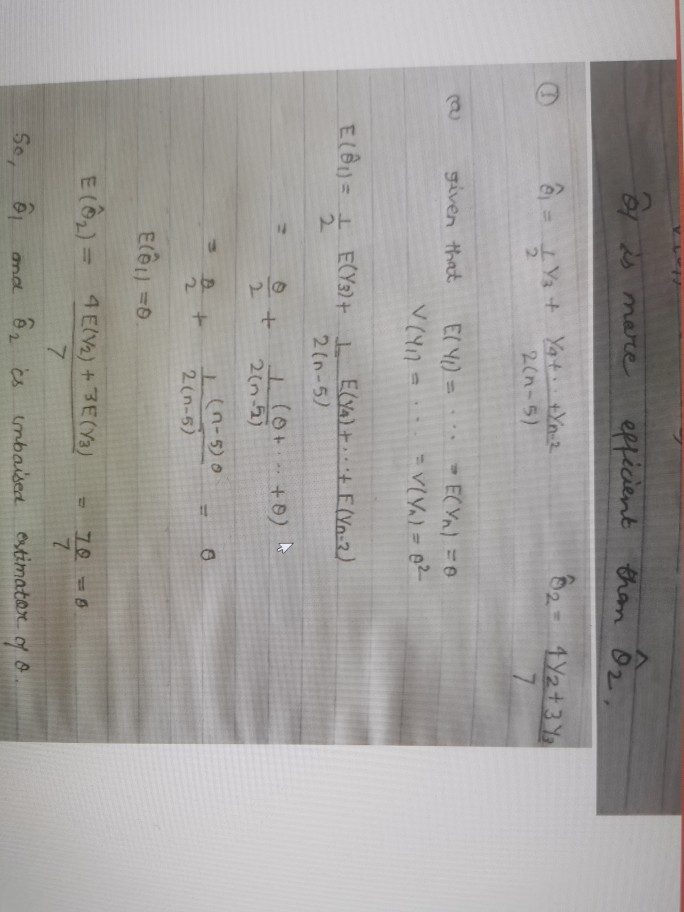 θ̂1 is more efficient than θ̂2.
① θ̂1 = 1/2 Y3 + (Y4 + ... + Yn-2)/2(n-5) θ̂2 = (4Y2 + 3Y3)/7
(a) given that E(Y1) = .... = E(Yn) = θ
V(Y1) = .... = V(Yn) = θ²
E(θ̂1) = 1/2 E(Y3) + 1/2(n-5) E(Y4) + ... + E(Yn-2)
= θ/2 + 1/2(n-5) (θ + ... + θ)
= θ/2 + 1/2(n-5) (n-5)θ = θ
E(θ̂1) = θ.
E(θ̂2) = (4E(Y2) + 3E(Y3))/7 = 7θ/7 = θ
So, θ̂1 and θ̂2 is unbaised estimator of θ.